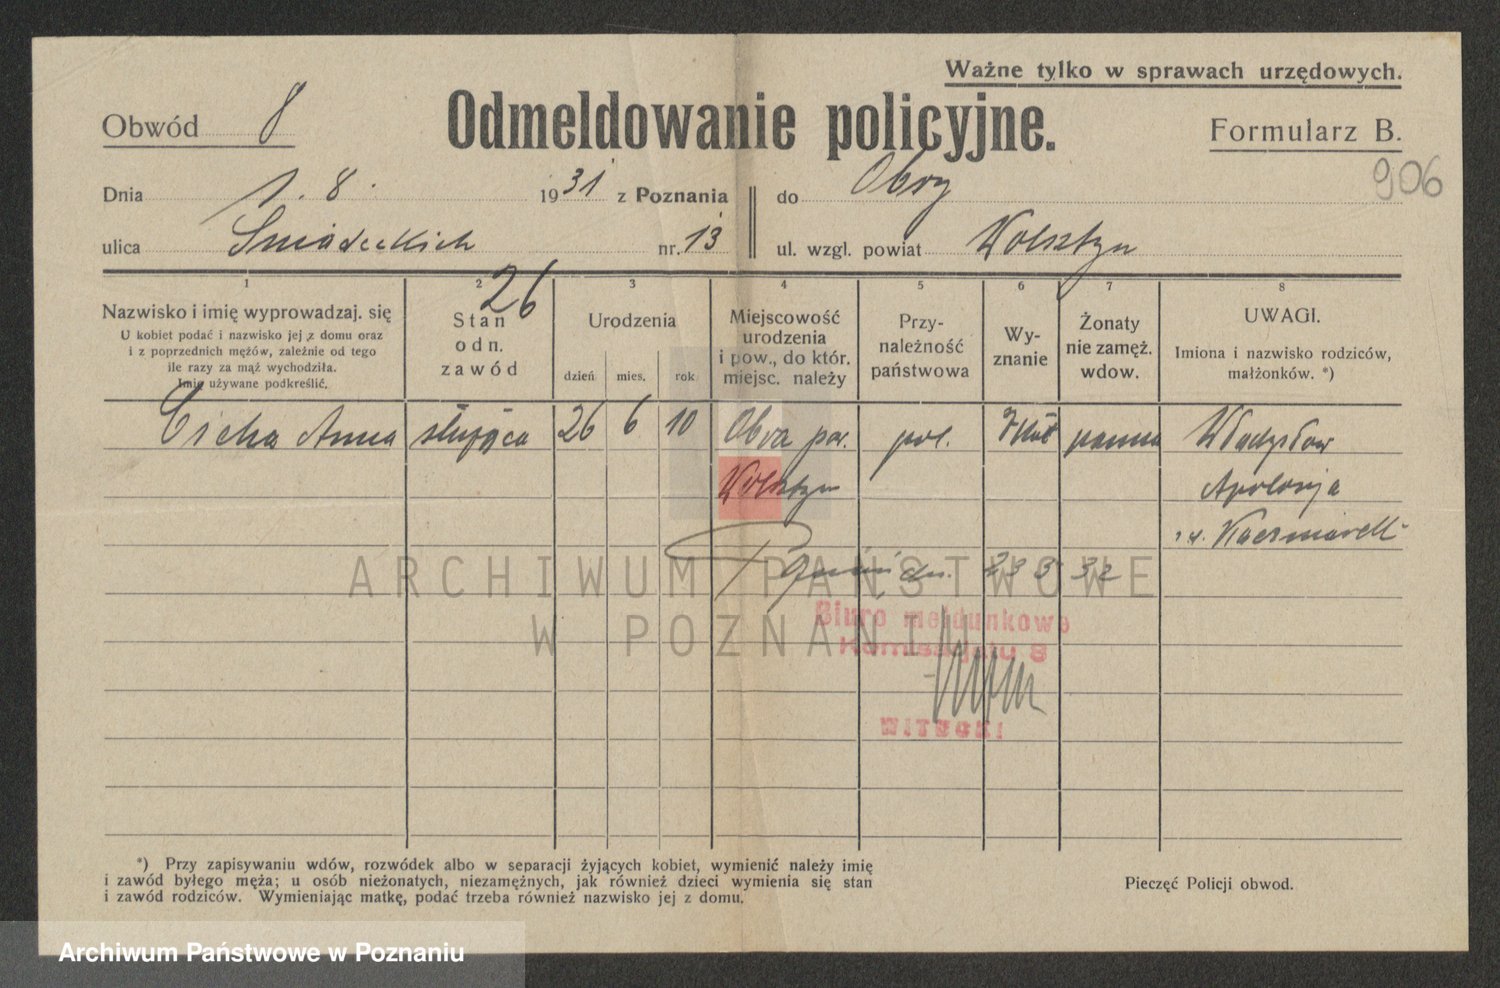 Ważne tylko w sprawach urzędowych.
Obwód 8
Odmeldowanie policyjne.
Formularz B.
906
Dnia 1. 8. 1931 z Poznania
do Obry
ulica Śniadeckich nr. 13
ul. wzgl. powiat Wolsztyn
26
1
Nazwisko i imię wyprowadzaj. się
U kobiet podać i nazwisko jej z domu oraz
i z poprzednich mężów, zależnie od tego
ile razy za mąż wychodziła.
Imię używane podkreślić.
2
Stan
odn.
zawód
3
Urodzenia
dzień mies. rok
4
Miejscowość
urodzenia
i pow., do któr.
miejsc. należy
5
Przy-
należność
państwowa
6
Wy-
znanie
7
Żonaty
nie zamęż.
wdow.
8
UWAGI.
Imiona i nazwisko rodziców,
małżonków. *)
Cicha Anna służąca 26 6 10 Obra pow. pol. panna Władysław
Wolsztyn Apolonja
Kaczmarek
23 3 32
ARCHIWUM PAŃSTWOWE
W POZNANIU
Biuro meldunkowe
Komisarjatu 8
WITECKI
*) Przy zapisywaniu wdów, rozwódek albo w separacji żyjących kobiet, wymienić należy imię
i zawód byłego męża; u osób nieżonatych, niezamężnych, jak również dzieci wymienia się stan
i zawód rodziców. Wymieniając matkę, podać trzeba również nazwisko jej z domu.
Pieczęć Policji obwod.
Archiwum Państwowe w Poznaniu